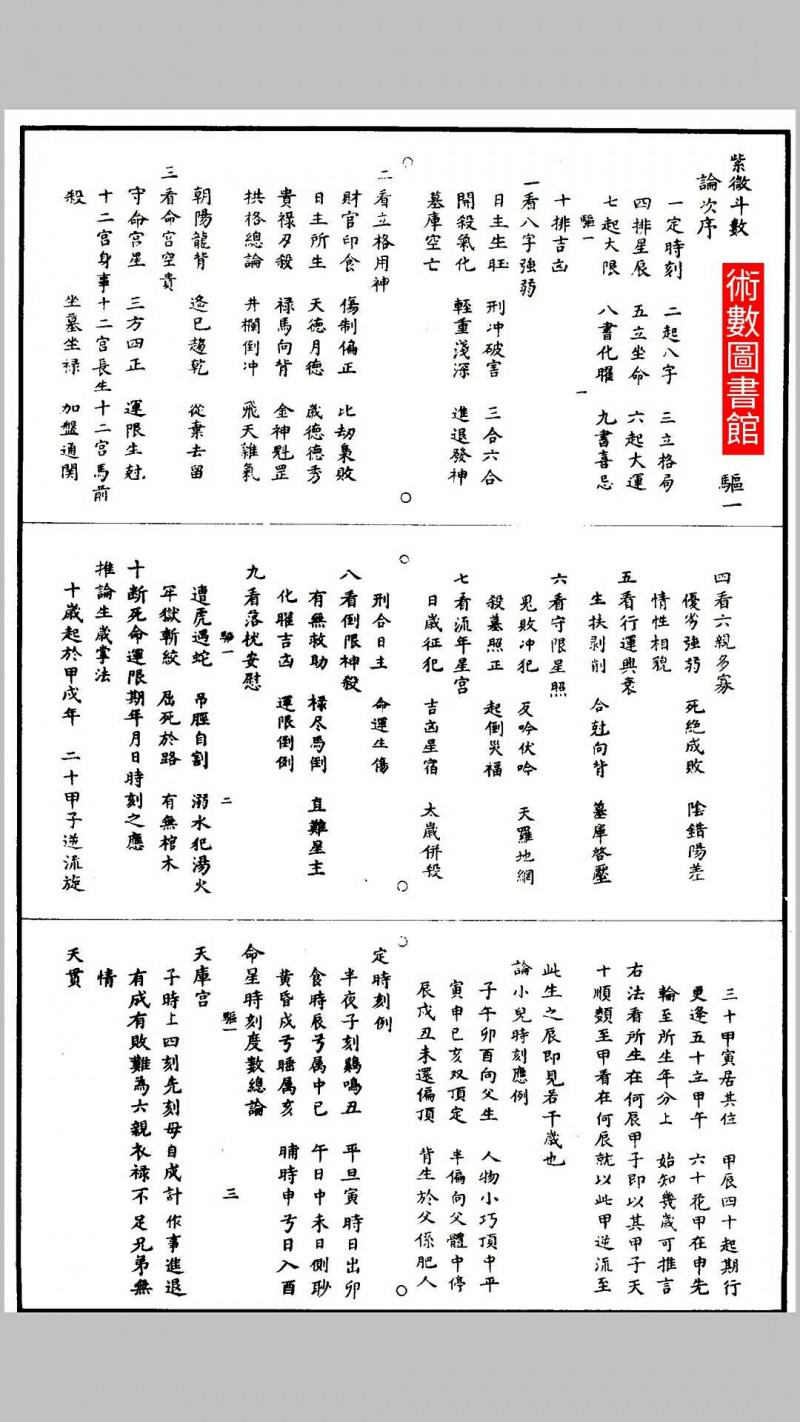 紫微斗數
驅一
術數圖書館
論次序
一定時刻 二起八字 三立格局
四排星辰 五立坐命 六起大運
七起大限 八書化曜 九書喜忌
驅一 一
十排吉凶
一看八字強弱
日主生旺 刑冲破害 三合六合
開殺氣化 輕重淺深 進退發神
墓庫空亡
二看立格用神
財官印食 傷制偏正 比劫梟敗
日主所生 天德月德 歲德德秀
貴祿刃殺 祿馬向背 金神魁罡
拱格總論 井欄倒冲 飛天雜氣
朝陽龍背 逄巳趨乾 從棄去留
三看命宫空貴
守命宫星 三方四正 運限生尅
十二宫身事十二宫長生十二宫馬前
殺 坐墓坐禄 加盤通関
四看六親多寡
優劣強弱 死絶成敗 陰錯陽差
情性相貌
五看行運興衰
生扶剥削 合尅向背 墓庫啓壓
六看守限星照
鬼敗冲犯 反吟伏吟 天羅地網
殺墓照正 起倒災福
七看流年星宫
日歲征犯 吉凶星宿 太歲併殺
刑合日主 命運生傷
八看倒限神殺
有無救助 禄尽馬倒 直難星主
化曜吉凶 運限倒例
九看落扰安慰
驅一 二
遭虎遇蛇 吊脛自割 溺水犯湯火
牢獄斬絞 屈死於路 有無棺木
十断死命運限期年月日時刻之應
推論生歲掌法
十歲起於甲戌年 二十甲子逆流旋
三十甲寅居其位 甲辰四十起期行
更逢五十立甲午 六十花甲在申先
輪至所生年分上 始知幾歲可推言
右法看所生在何辰甲子即以其甲子天
十順類至甲看在何辰就以此甲逆流至
此生之辰即見若干歲也
論小兒時刻應例
子午卯酉向父生 人物小巧頂中平
寅申巳亥双頂定 半偏向父體中停
辰戌丑未還偏頂 背生於父係肥人
定時刻例
半夜子刻鷄鳴丑 平旦寅時日出卯
食時辰兮属中巳 午日中未日側眇
黄昏戌兮睡属亥 晡時申兮日入酉
命星時刻度數總論
驅一 三
天庫宫
子時上四刻先刻母自成計作事進退
有成有敗難為六親衣禄不足兄弟無
情
天贯